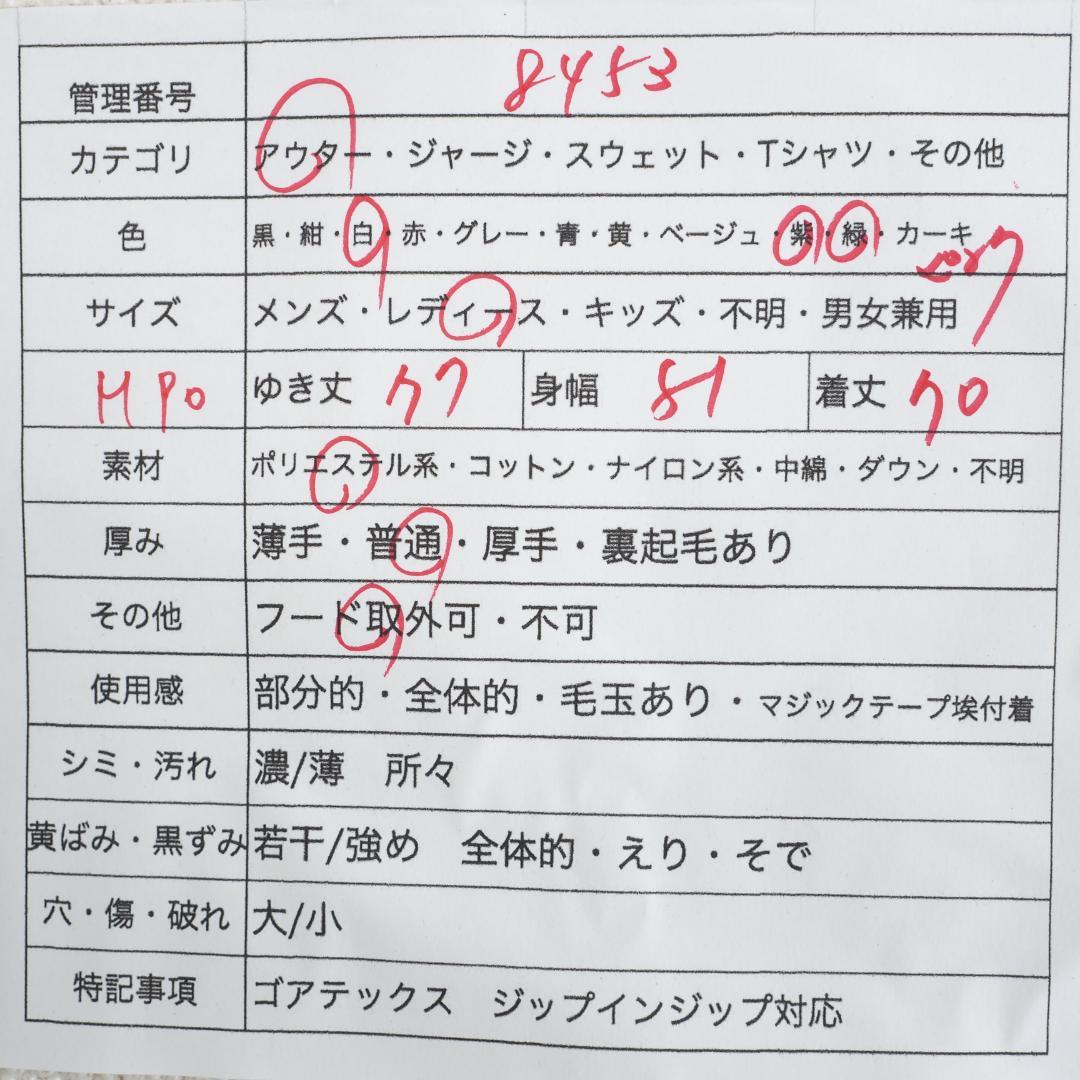 管理番号 8453
カテゴリ アウター・ジャージ・スウェット・Tシャツ・その他
色 黒・紺・白・赤・グレー・青・黄・ベージュ・紫・緑・カーキ
ピンク
サイズ メンズ・レディース・キッズ・不明・男女兼用
MPO ゆき丈 77 身幅 81 着丈 70
素材 ポリエステル系・コットン・ナイロン系・中綿・ダウン・不明
厚み 薄手・普通・厚手・裏起毛あり
その他 フード取外可・不可
使用感 部分的・全体的・毛玉あり・マジックテープ埃付着
シミ・汚れ 濃/薄 所々
黄ばみ・黒ずみ 若干/強め 全体的・えり・そで
穴・傷・破れ 大/小
特記事項 ゴアテックス ジップインジップ対応